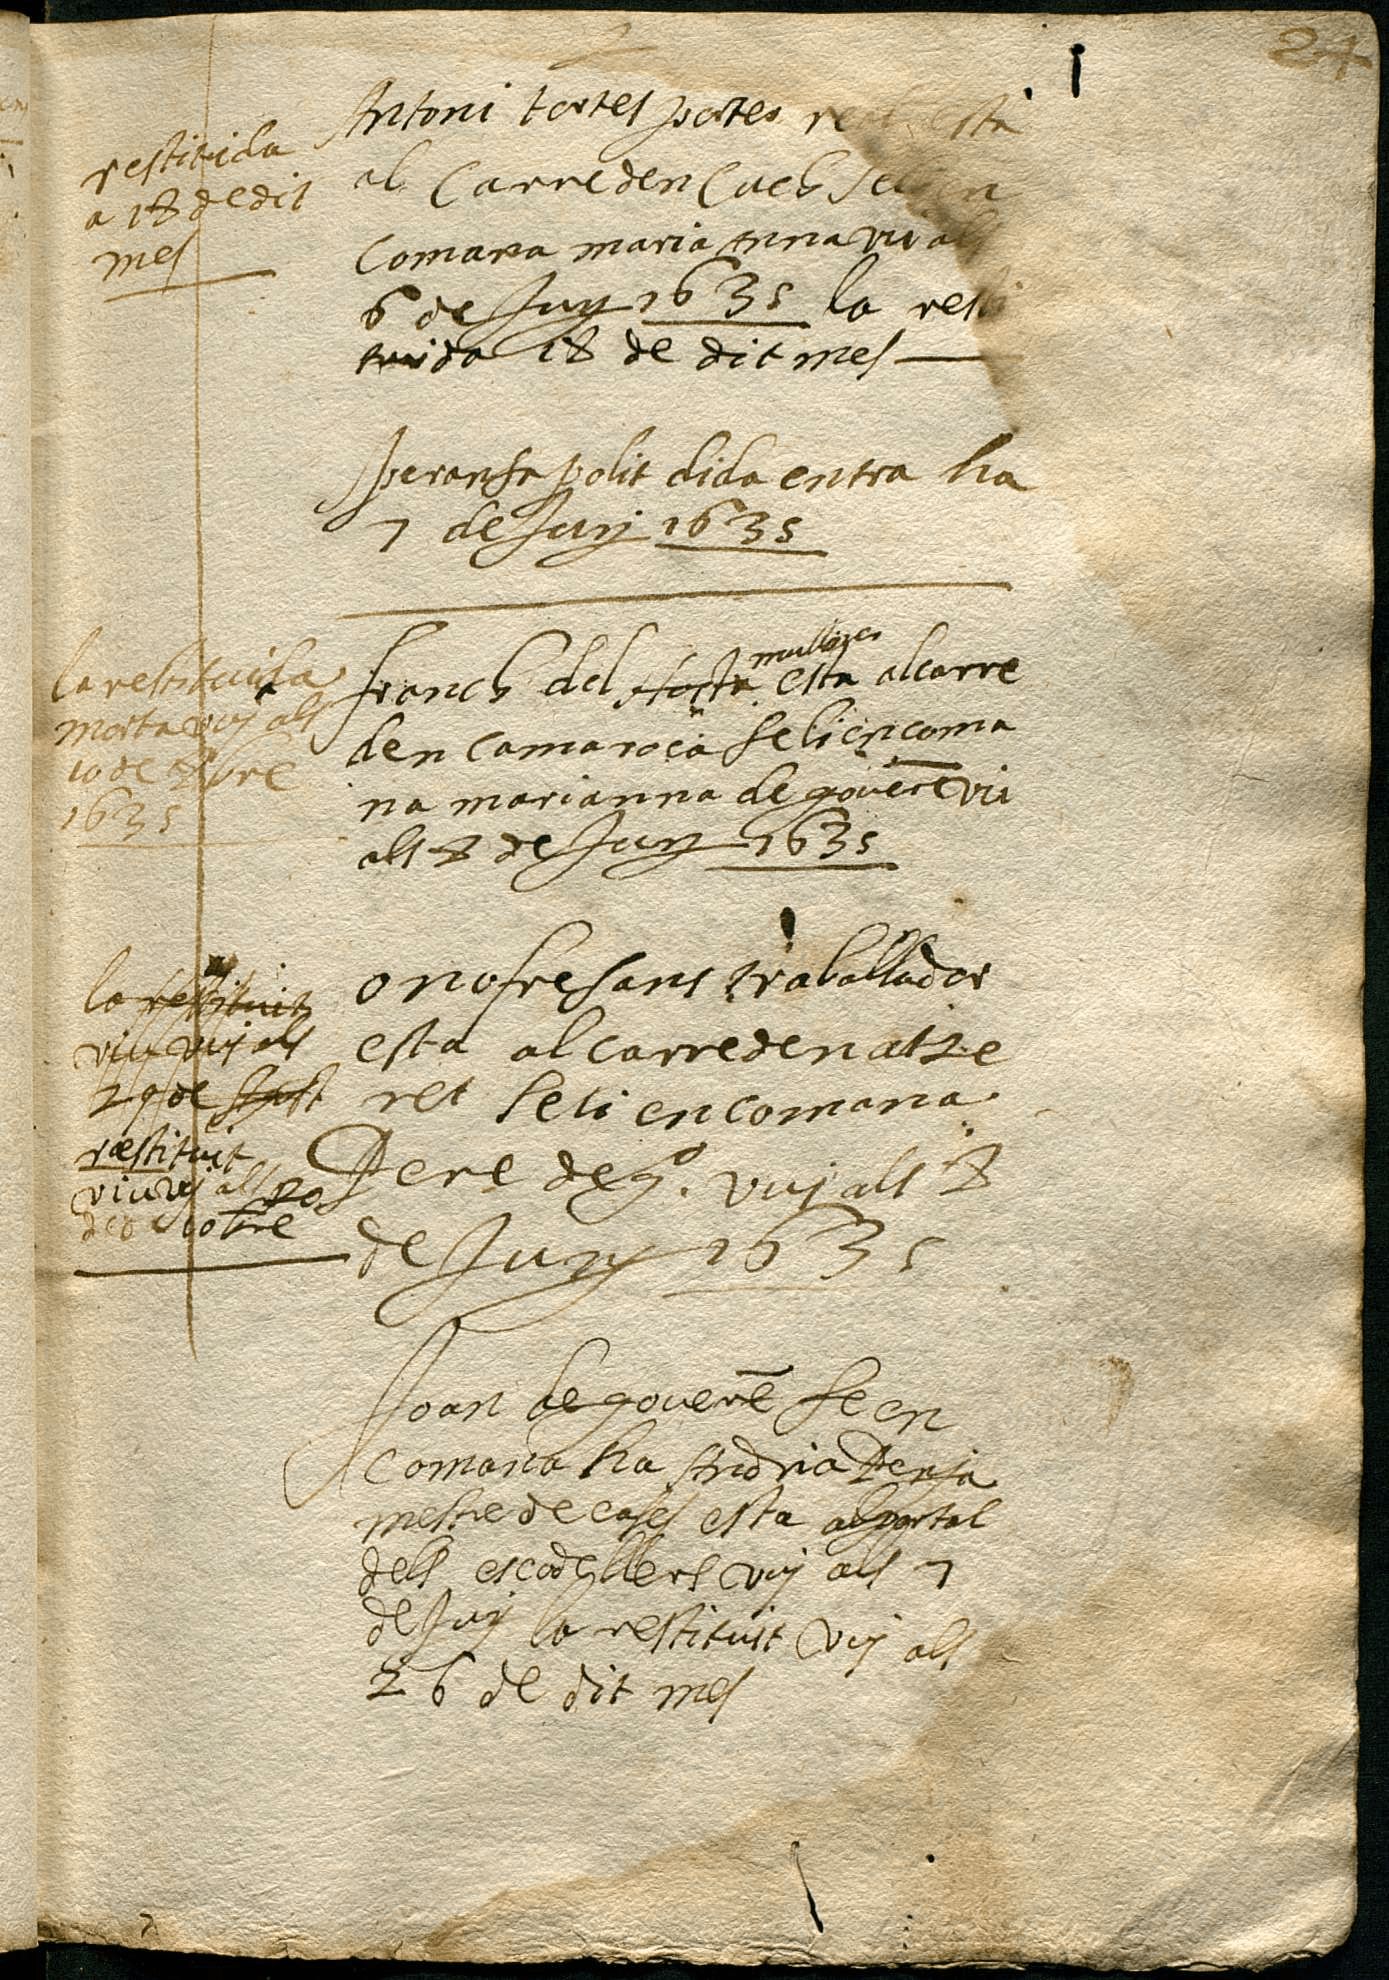 24
restituida
a 18 de dit
mes
Antoni tortes portes real esta
al Carre den Cuch seli en
Comana maria Anna vui als
6 de Juny 1635 la resti
tuida 18 de dit mes
speransa polit dida entra ha
7 de Juny 1635
la restituida
morta vuy als
10 de 8bre
1635
franch del esta alcarre
den camaroca seli encoma
na marianna de goverē vui
als 8 de Juny 1635
la restituit
viu vuy als
29 de Agost
restituit
viu vuj als 20
de octobre
onofre sans traballador
esta al carre den atze
ret seli encomana
Pere de gº. vuj als 8
de Juny 1635
Joan de goverē se en
comana ha Andria
mestre de cases esta al portal
dels escodellers vuj als 7
de Juny la restituit vuj als
26 de dit mes